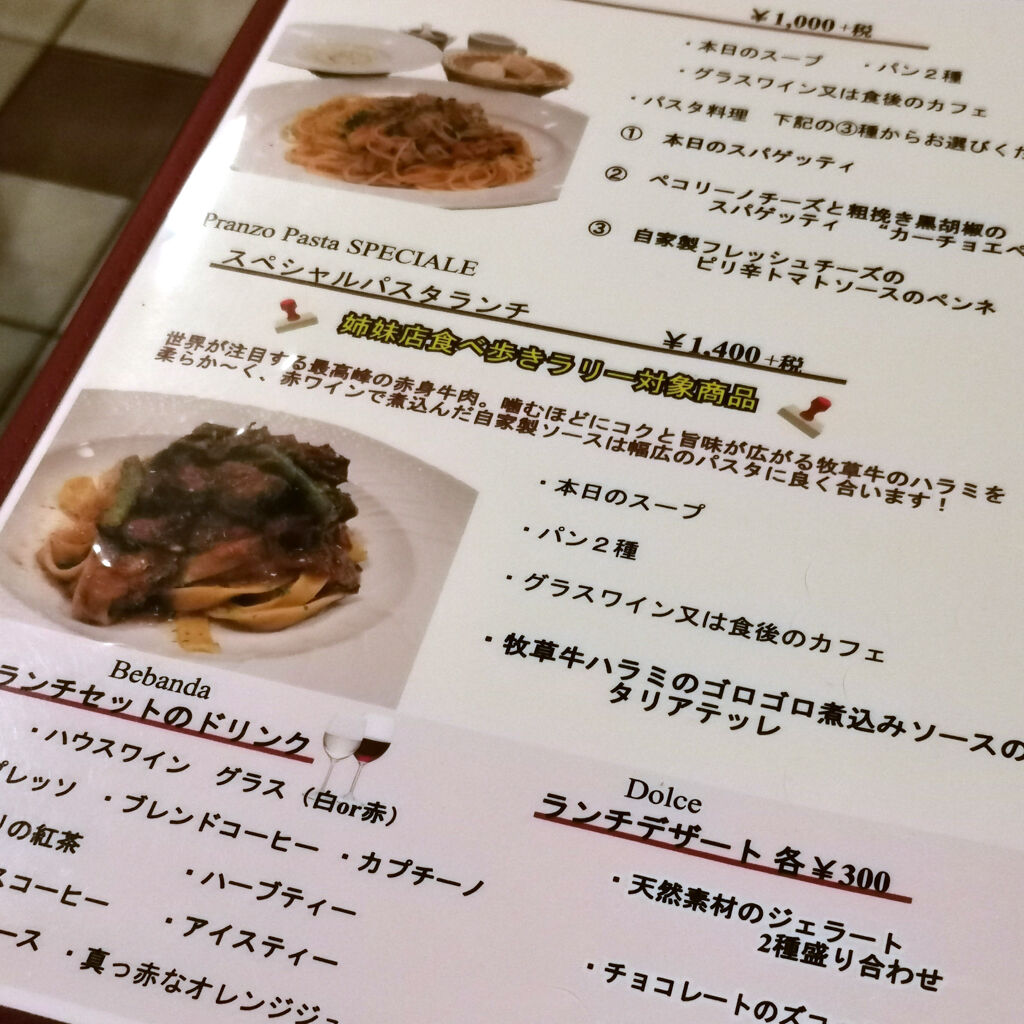 ¥1,000+税
・本日のスープ ・パン2種
・グラスワイン又は食後のカフェ
・パスタ料理 下記の③種からお選びくだ
① 本日のスパゲッティ
② ペコリーノチーズと粗挽き黒胡椒の
スパゲッティ “カーチョエペ
③ 自家製フレッシュチーズの
ピリ辛トマトソースのペンネ
Pranzo Pasta SPECIALE
スペシャルパスタランチ
¥1,400+税
姉妹店食べ歩きラリー対象商品
世界が注目する最高峰の赤身牛肉。噛むほどにコクと旨味が広がる牧草牛のハラミを
柔らか～く、赤ワインで煮込んだ自家製ソースは幅広のパスタに良く合います!
・本日のスープ
・パン2種
・グラスワイン又は食後のカフェ
・牧草牛ハラミのゴロゴロ煮込みソースの
タリアテッレ
Bebanda
ランチセットのドリンク
・ハウスワイン グラス（白or赤）
プレッソ ・ブレンドコーヒー ・カプチーノ
りの紅茶 ・ハーブティー
スコーヒー ・アイスティー
ース ・真っ赤なオレンジジュ
Dolce
ランチデザート 各¥300
・天然素材のジェラート
2種盛り合わせ
・チョコレートのズコ